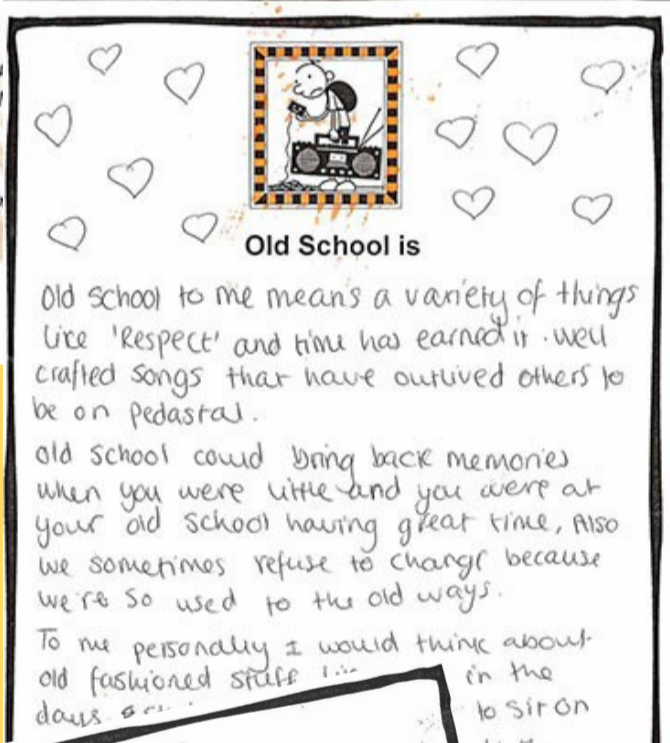 Old School is
Old school to me means a variety of things
like 'Respect' and time has earned it. well
crafted songs that have outlived others to
be on pedastal.
old school could bring back memories
when you were little and you were at
your old school having great time, Also
we sometimes refuse to change because
we're so used to the old ways.
To me personally I would think about
old fashioned stuff in the
days to sit on